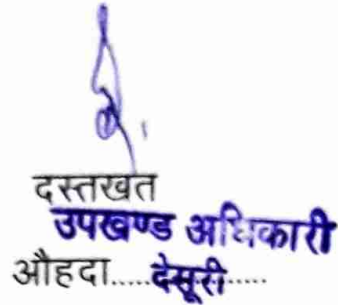 दस्तखत
उपखण्ड अधिकारी
औहदा.....देसूरी.....